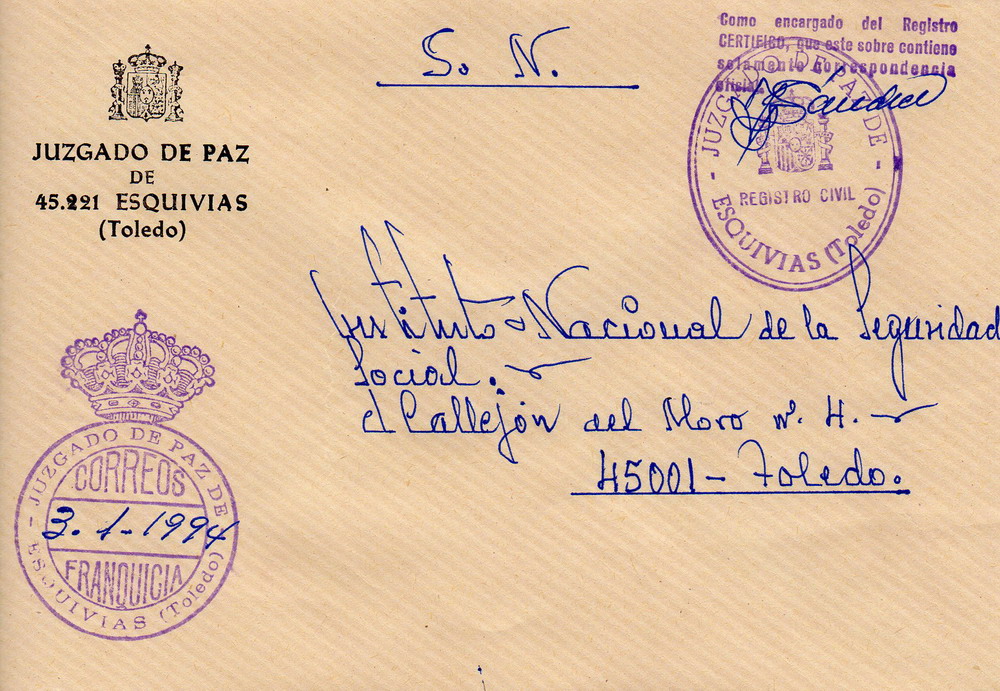 S. N.
Como encargado del Registro
CERTIFICO, que este sobre contiene
solamente correspondencia
oficial.
JUZGADO DE PAZ DE
REGISTRO CIVIL
ESQUIVIAS (Toledo)
JUZGADO DE PAZ
DE
45.221 ESQUIVIAS
(Toledo)
Instituto Nacional de la Seguridad
Social.
c/ Callejón del Moro nº 4.
45001 - Toledo.
JUZGADO DE PAZ DE
CORREOS
3-1-1994
FRANQUICIA
ESQUIVIAS (Toledo)